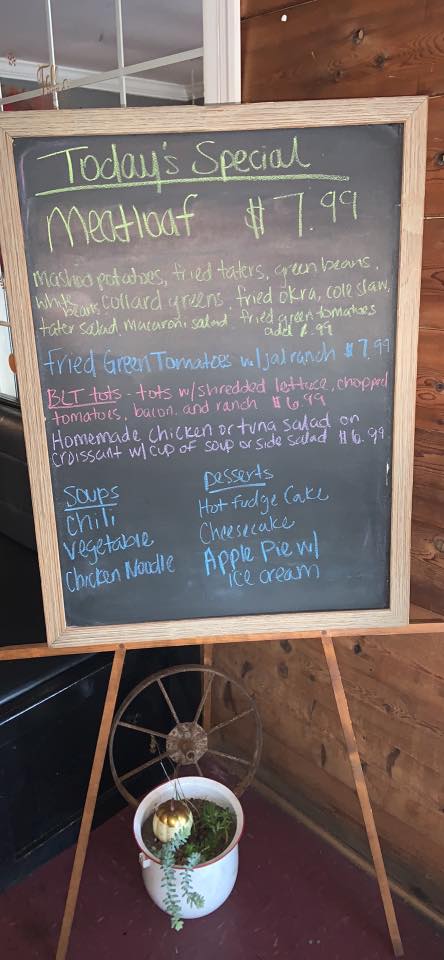 Today's Special
Meatloaf $7.99
mashed potatoes, fried taters, green beans,
white beans collard greens fried okra, cole slaw,
tater salad macaroni salad fried green tomatoes
add .99
Fried Green Tomatoes w/ jal ranch $7.99
BLT tots - tots w/ shredded lettuce, chopped
tomatoes, bacon, and ranch $6.99
Homemade chicken or tuna salad on
croissant w/ cup of soup or side salad $6.99
Soups
Chili
Vegetable
Chicken Noodle
Desserts
Hot fudge Cake
Cheesecake
Apple Pie w/
ice cream